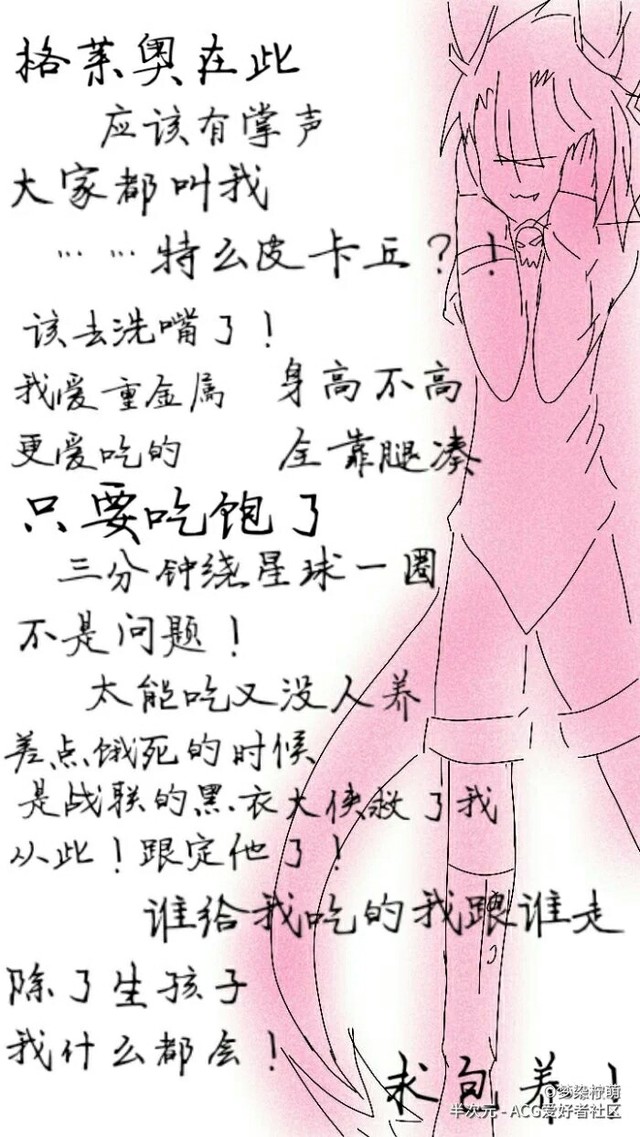 格莱奥在此
应该有掌声
大家都叫我
……特么皮卡丘？！
该去洗嘴了！
我爱重金属
身高不高
更爱吃的
全靠腿凑
只要吃饱了
三分钟绕星球一圈
不是问题！
太能吃又没人养
差点饿死的时候
是战联的黑衣大侠救了我
从此！跟定他了！
谁给我吃的我跟谁走
除了生孩子
我什么都会！
求包养！
@梦染柠萌
半次元 - ACG爱好者社区